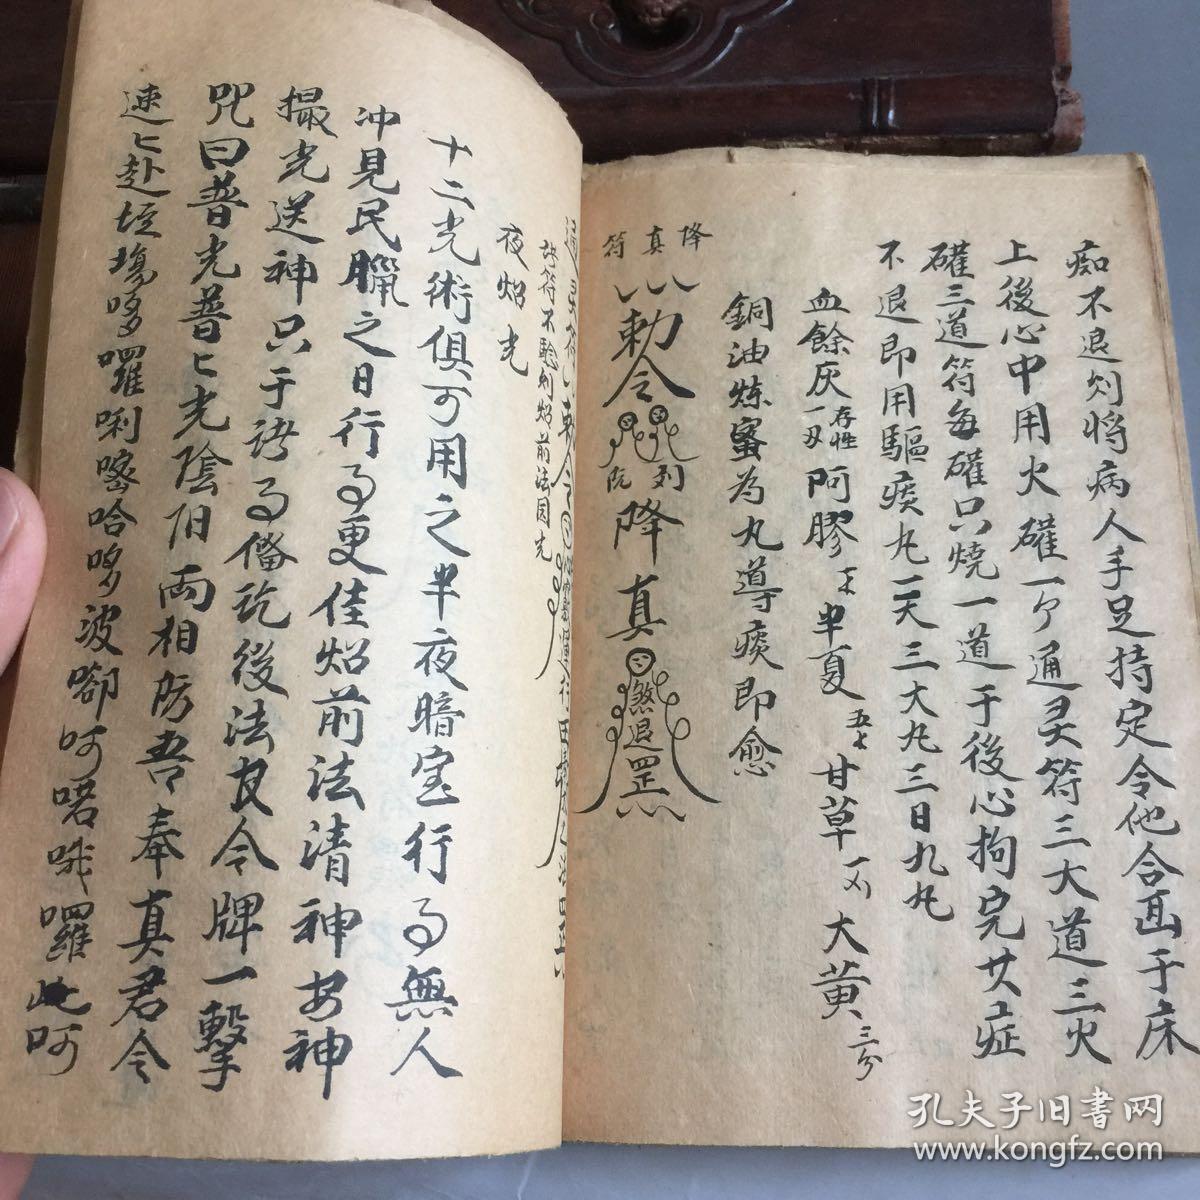 痴不退则将病人手足持定令他合面于床
上後心中用火礶一个通灵符三大道三火
礶三道符每礶只燒一道于後心拘完其症
不退即用驅痰丸一天三大丸三日九丸
血餘灰存性一刄阿膠半夏五七甘草一刄大黄三分
銅油炼蜜為丸導痰即愈
降真符
勅令
降真
煞退罡
此符不驗则炤前法因光
夜炤光
十二光術俱可用之半夜暗室行事無人
冲見民臘之日行事更佳炤前法清神安神
撮光送神只于諸事备訖後法衣令牌一擊
咒曰普光普〻光陰阳両相防吾奉真君令
速〻赴坛場哆囉唎嘧哈哆波啷呵喏哦囉吔呵
孔夫子旧书网
www.kongfz.com